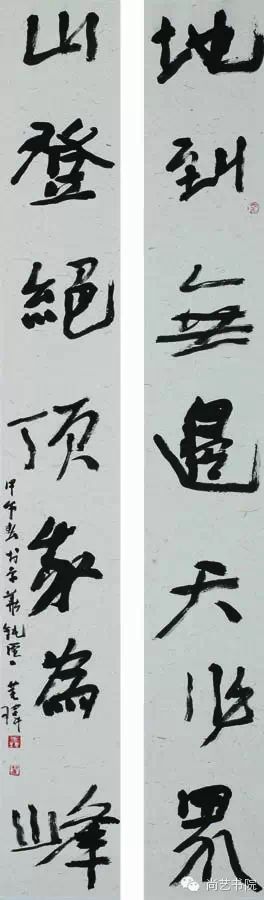 地到無邊天作界
山登絕頂我為峰
甲午
尚艺书院